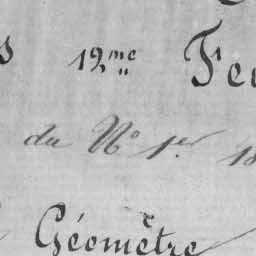 12me Fe
du No 1er
Géomètre